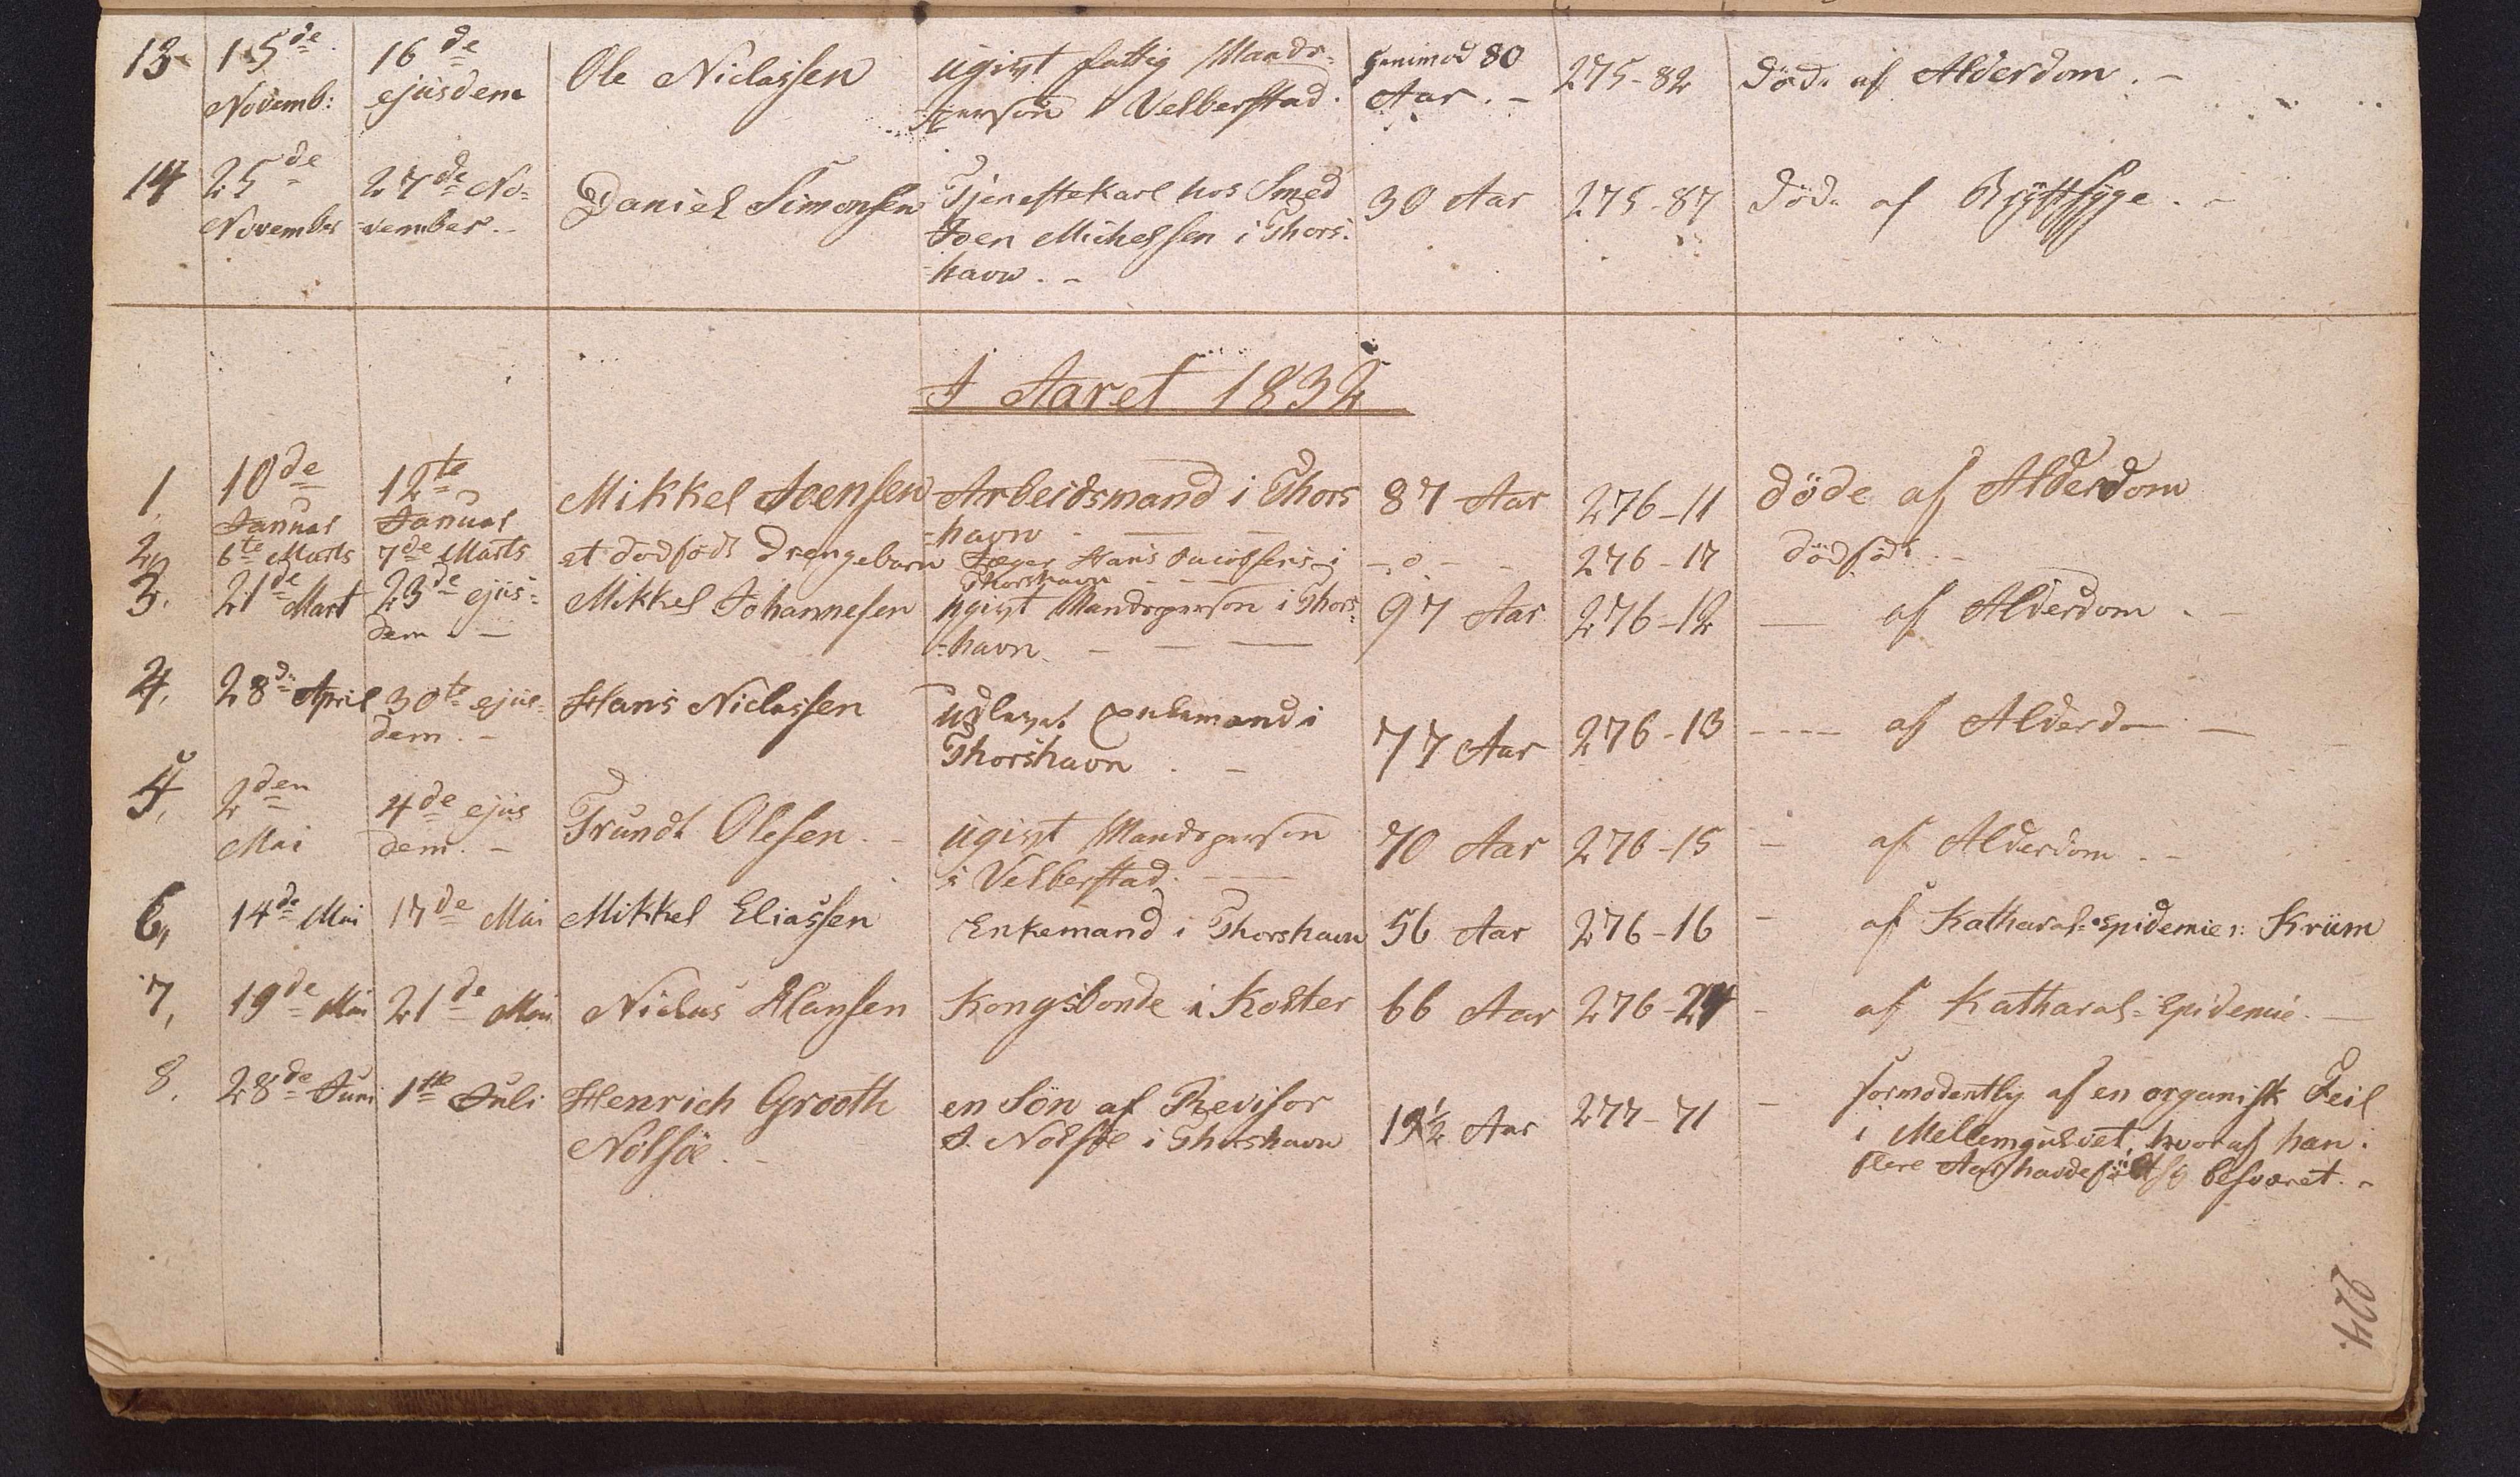 13 15de 16de Ole Niclassen ugivt fattig Mands- henimod 80 275-82 Døde af Alderdom. -
Novemb: ejusdem person i Velberstad. Aar. -
14 25de 27de No- Daniel Simonsen Tjenestekarl hos Smed 30 Aar 275-87 Døde af Brÿstsÿge. -
November vember. - Joen Michelsen i Thors-
havn. -
I Aaret 1832
1. 10de 12te Mikkel Joensen Arbeidsmand i Thors 87 Aar 276-11 døde af Alderdom
Januar Januar -havn
2. 6te Marts 7de Marts et dødfødt Drengebarn Hans Jacobsens i - 0 - 276-17 dødfødt -
Thorshavn
3. 21de Mart 23de ejus- Mikkel Johannesen ugivt Mandsperson i Thors- 97 Aar 276-12 — af Alderdom. -
dem. — -havn. - — —
4. 28de April 30te ejus- Hans Niclassen Enkemand i 77 Aar 276-13 ---- af Alderd— —
dem. - Thorshavn. -
5. 2den 4de ejus Trundt Olesen. - ugivt Mandsperson 70 Aar 276-15 - af Alderdom. -
Mai dem. - i Velberstad. —
6, 14de Mai 17de Mai Mikkel Eliassen Enkemand i Thorshavn 56 Aar 276-16 - af Katharal-Epidemie ɔ: Krüm
7, 19de Mai 21de Mai Niclas Hansen Kongsbonde i Kolter 66 Aar 276-24 - af Katharal-Epidemie. —
8. 28de Juni 1ste Juli Henrich Grooth en Søn af Revisor 19½ Aar 277-71 - formodentlig af en organisk Feil
Nolsøe. - J. Nolsøe i Thorshavn i Mellemgulvet, hvoraf han i
flere Aar havde følt sig besværet. -
224